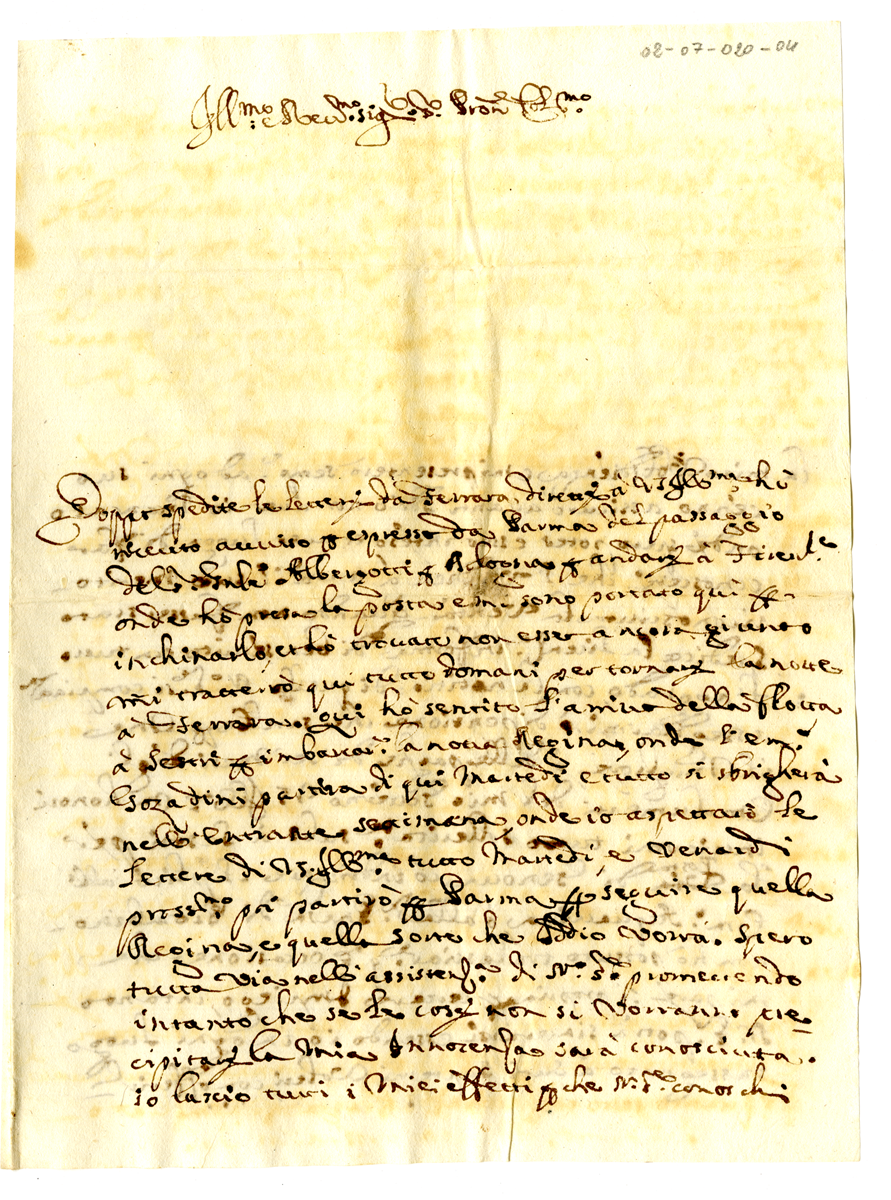 02-07-020-04
Ill.mo e Rev.mo Sig.r Sig.r Pron Col.mo
Doppo spedite le lettere da Ferrara, dirette à V.S. Ill.ma hò
riceuto auuiso p espresso da Parma del passaggio
del Albergotti p Bologna p andare à Firenze
onde hò presa la posta e mi sono portato qui p
inchinarlo, et hò trouato non esser ancora giunto
mi tratterrò qui tutto domani per tornare la notte
à Ferrara. Qui hò sentito l'arriuo della flotta
à Sestri p imbarcar la noua Regina, onde l'em.o
Gozadini partira di qui Martedì e tutto si sbrigherà
nell'entrante settimana, onde io aspettarò le
lettere di V.S. Ill.ma tutto Martedì, e Venardì
pross.mo poi partirò p Parma p seguire quella
Regina, e quella sorte che Iddio vorrà. Spero
tutta via nell'assistenza di promettendo
intanto che se le cose non si vorranno pre=
cipitare la mia Innocenza sarà conosciuta.
io lascio tutti i miei effetti p che conoschi